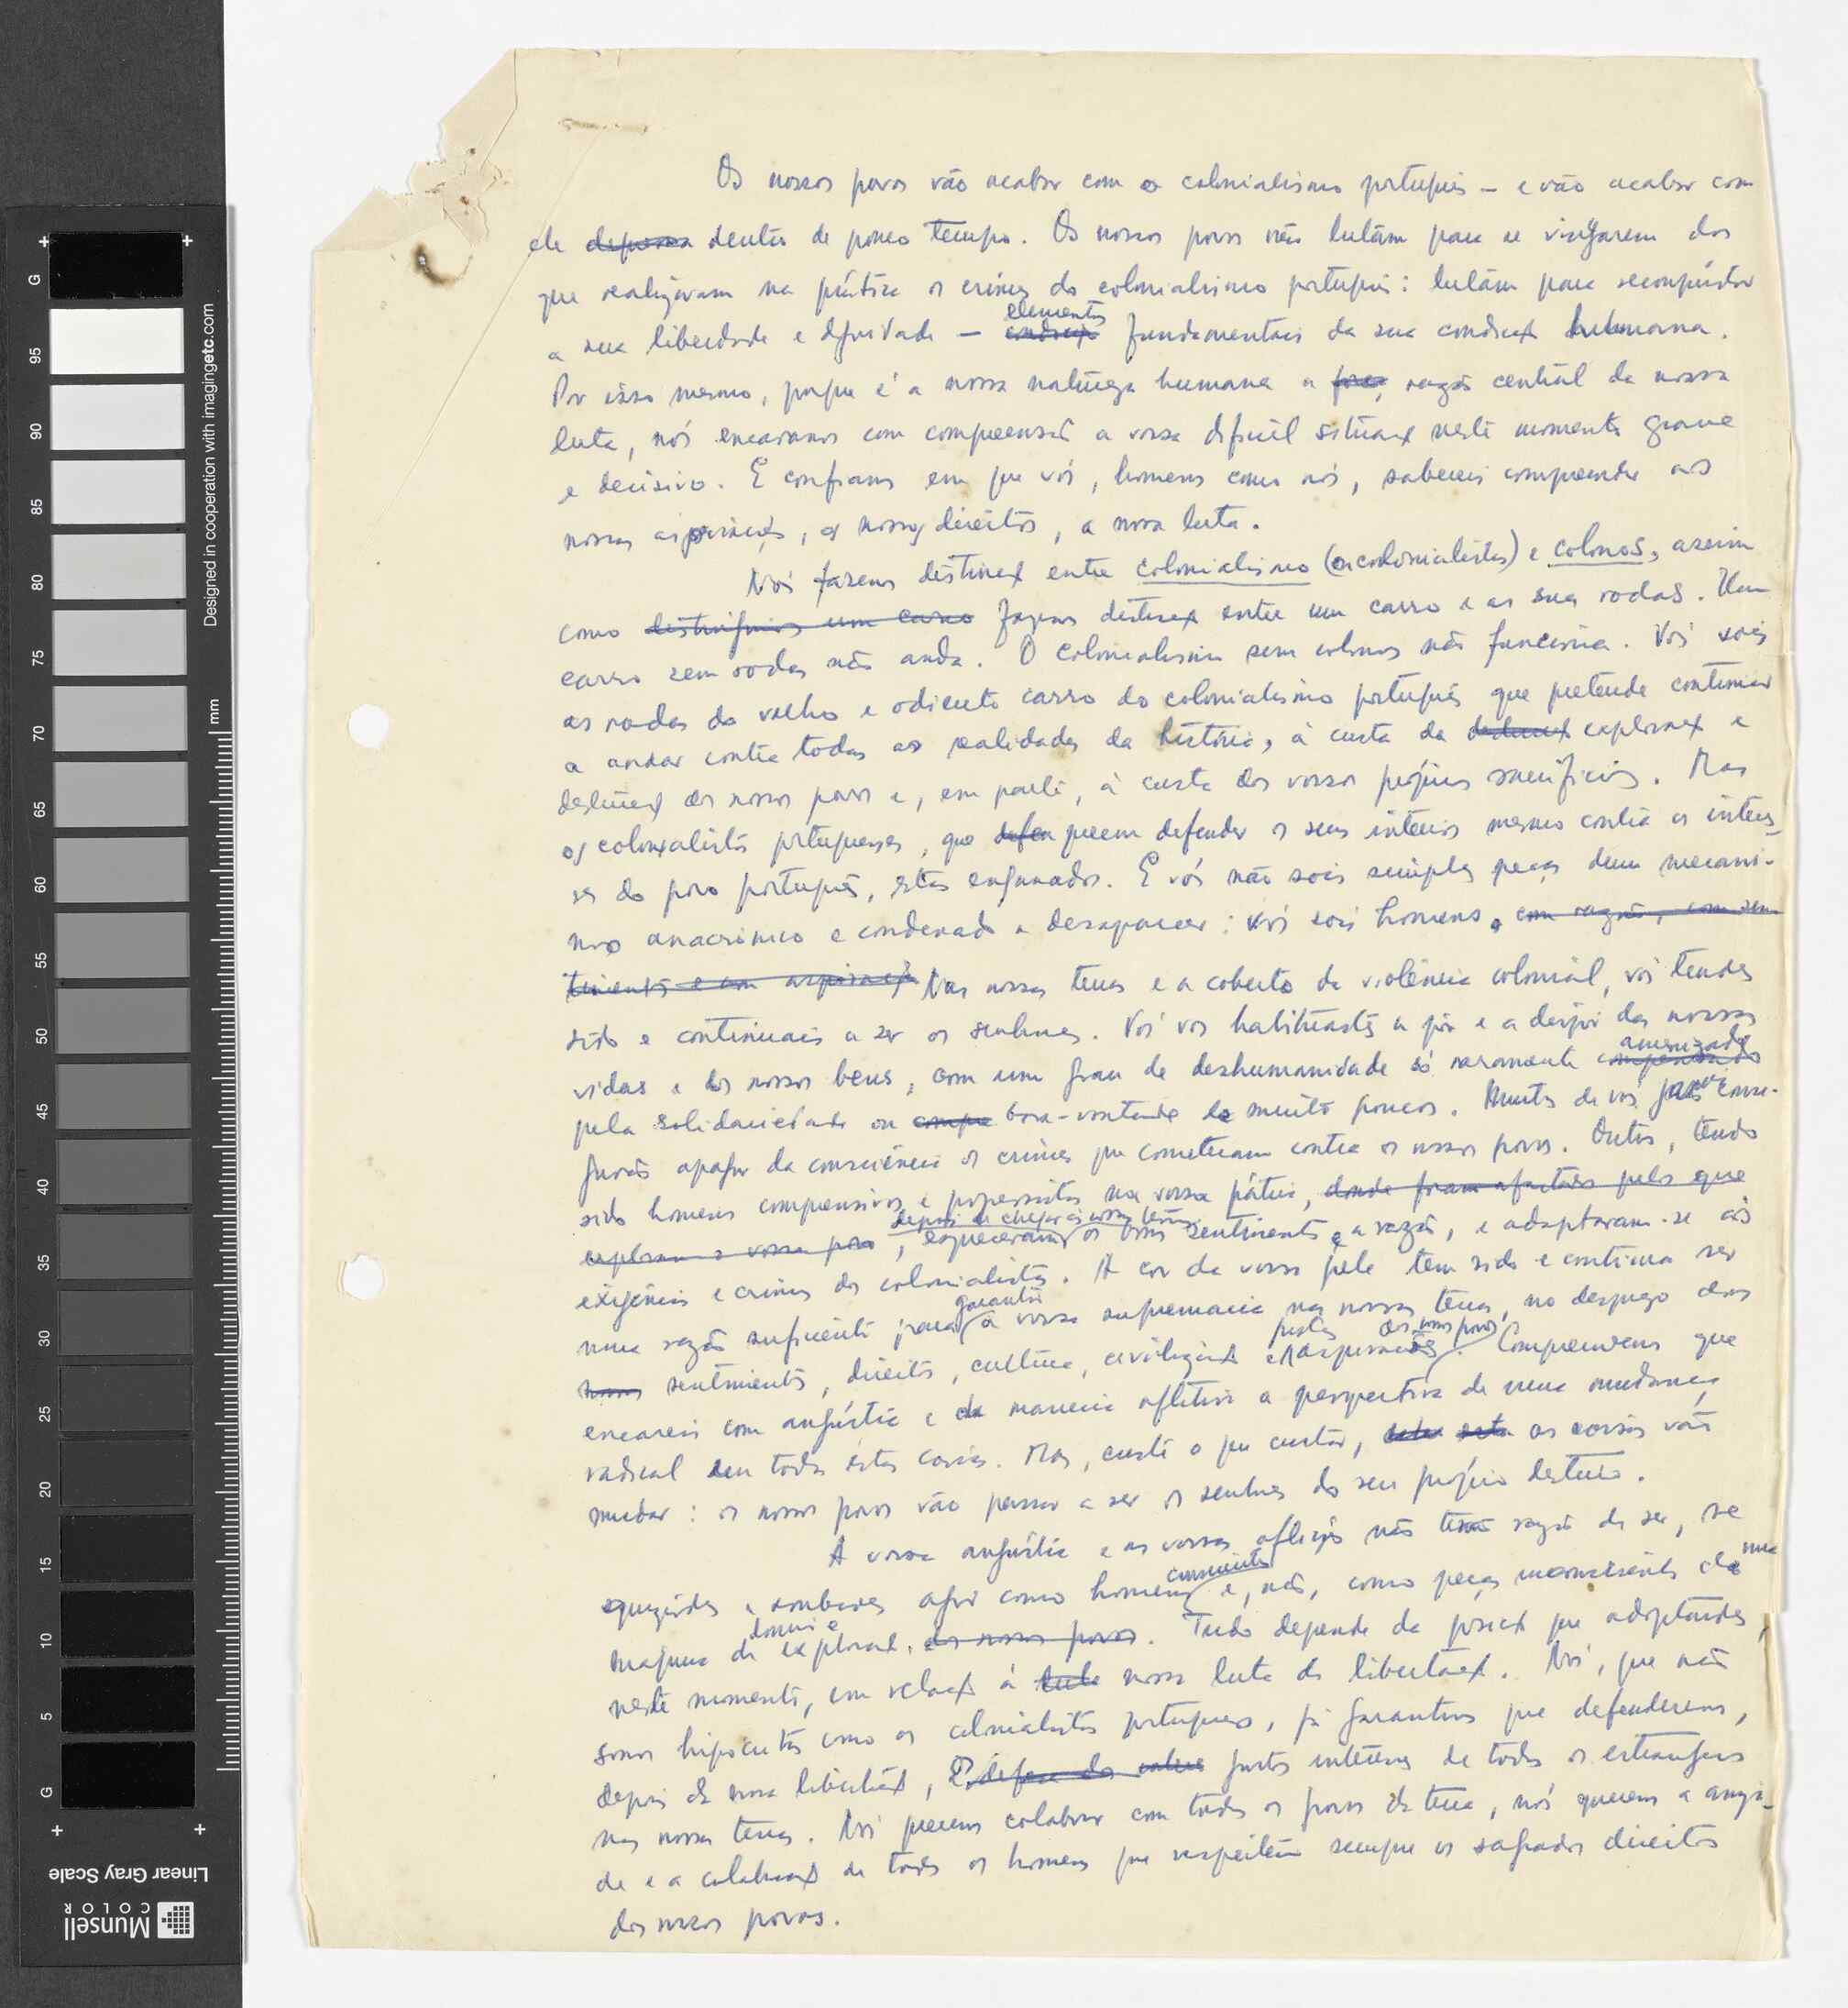 Os nossos povos vão acabar com o colonialismo português — e vão acabar com
ele depressa dentro de pouco tempo. Os nossos povos não lutam para se vingarem dos
que realizaram na prática os crimes do colonialismo português: lutam para reconquistar
a sua liberdade e dignidade — condição elementos fundamentais da sua condição humana.
Por isso mesmo, porque é a nossa natureza humana a razão central da nossa
luta, nós encaramos com compreensão a vossa difícil situação neste momento grave
e decisivo. E confiamos em que vós, homens como nós, sabereis compreender as
nossas aspirações, os nossos direitos, a nossa luta.
Nós fazemos distinção entre colonialismo (e colonialistas) e colonos, assim
como distinguimos um carro fazemos distinção entre um carro e as suas rodas. Um
carro sem rodas não anda. O colonialismo sem colonos não funciona. Vós sois
as rodas do velho e odiento carro do colonialismo português que pretende continuar
a andar contra todas as realidades da história, à custa da exploração e
dos nossos povos e, em parte, à custa dos vossos próprios sacrifícios. Mas
os colonialistas portugueses, que defen querem defender os seus interesses mesmo contra os interes-
ses do povo português, estão enganados. E vós não sois simples peças dum mecani-
smo anacrónico e condenado a desaparecer: vós sois homens, com razão, com sen-
timentos e com aspirações Nas nossas terras e a coberto da violência colonial, vós tendes
sido e continuais a ser os senhores. Vós vos habituastes a pôr e a dispor das nossas
vidas e dos nossos bens, com um grau de deshumanidade só raramente compensado amenizado
pela solidariedade ou compre boa-vontade de muito poucos. Muitos de vós jamais conse-
guirão apagar da consciência os crimes que cometeram contra os nossos povos. Outros, tendo
sido homens compreensivos e progressistas na vossa pátria, donde foram afastados pelos que
exploram o vosso povo, depois de chegar às nossas terras esqueceram os bons sentimentos e a razão, e adaptaram-se às
exigências e crimes dos colonialistas. A cor da vossa pele tem sido e continua a ser
uma razão suficiente para garantir a vossa supremacia nas nossas terras, no desprezo dos
nossos sentimentos, direitos, cultura, civilização e justas aspirações dos nossos povos. Compreendemos que
encareis com angústia e de maneira aflitiva a perspectiva de uma mudança
radical em todas estas coisas. Mas, custe o que custar, as coisas vão
mudar: os nossos povos vão passar a ser os senhores do seu próprio destino.
A vossa angústia e as vossas aflições não terão razão de ser, se
quizerdes e souberdes agir como homens conscientes e, não, como peças inconscientes de uma
máquina de domínio e exploração, dos nossos povos. Tudo depende da posição que adoptardes,
neste momento, em relação à luta nossa luta de libertação. Nós, que não
somos hipócritas como os colonialistas portugueses, já garantimos que defenderemos,
depois da nossa libertação, a defesa dos justos interesses de todos os estrangeiros
nas nossas terras. Nós queremos colaborar com todos os povos da terra, nós queremos a amiza-
de e a colaboração de todos os homens que respeitem sempre os sagrados direitos
dos nossos povos.
Designed in cooperation with imagingetc.com
mm
G
95
90
85
80
75
70
65
60
55
50
45
40
35
30
25
20
15
10
5
G
Linear Gray Scale
Munsell
COLOR